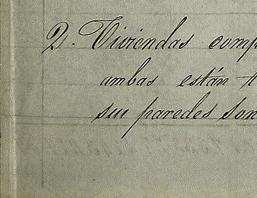 2. Viviendas comp
ambas están t
sus paredes son